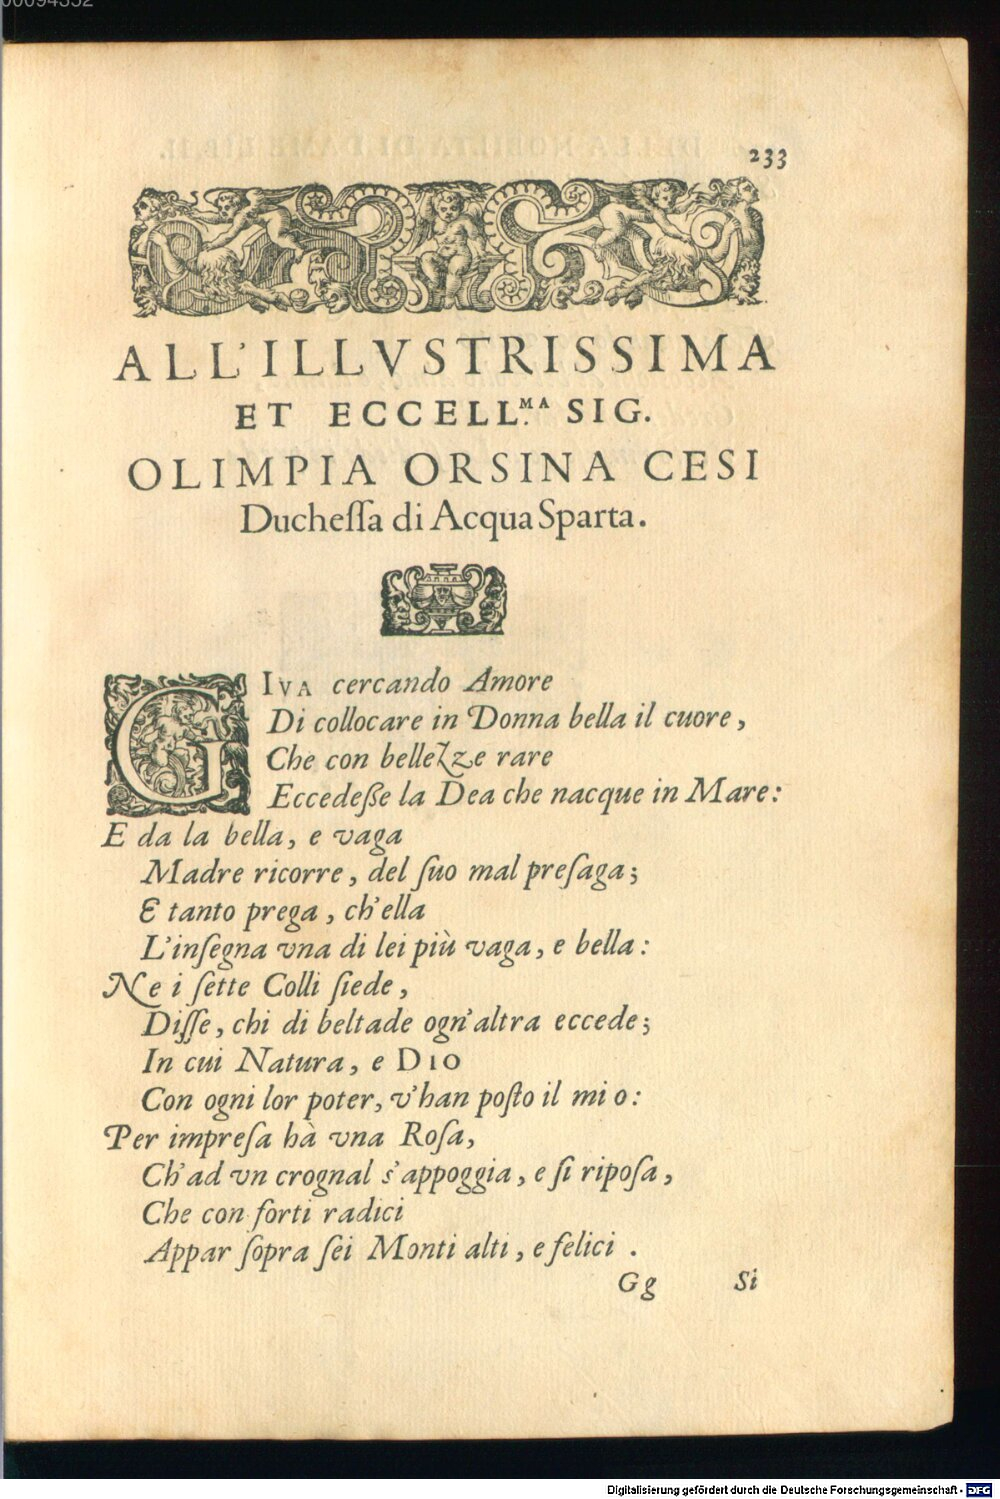 233
ALL'ILLVSTRISSIMA
ET ECCELL.MA SIG.
OLIMPIA ORSINA CESI
Ducheſſa di Acqua Sparta.
GIVA cercando Amore
Di collocare in Donna bella il cuore,
Che con bellezze rare
Eccedeſſe la Dea che nacque in Mare:
E da la bella, e vaga
Madre ricorre, del ſuo mal preſaga;
E tanto prega, ch'ella
L'inſegna vna di lei più vaga, e bella:
Ne i ſette Colli ſiede,
Diſſe, chi di beltade ogn'altra eccede;
In cui Natura, e DIO
Con ogni lor poter, v'han poſto il mio:
Per impreſa hà vna Roſa,
Ch'ad vn crognal s'appoggia, e ſi ripoſa,
Che con forti radici
Appar ſopra ſei Monti alti, e felici.
Gg Si
Digitalisierung gefördert durch die Deutsche Forschungsgemeinschaft - DFG